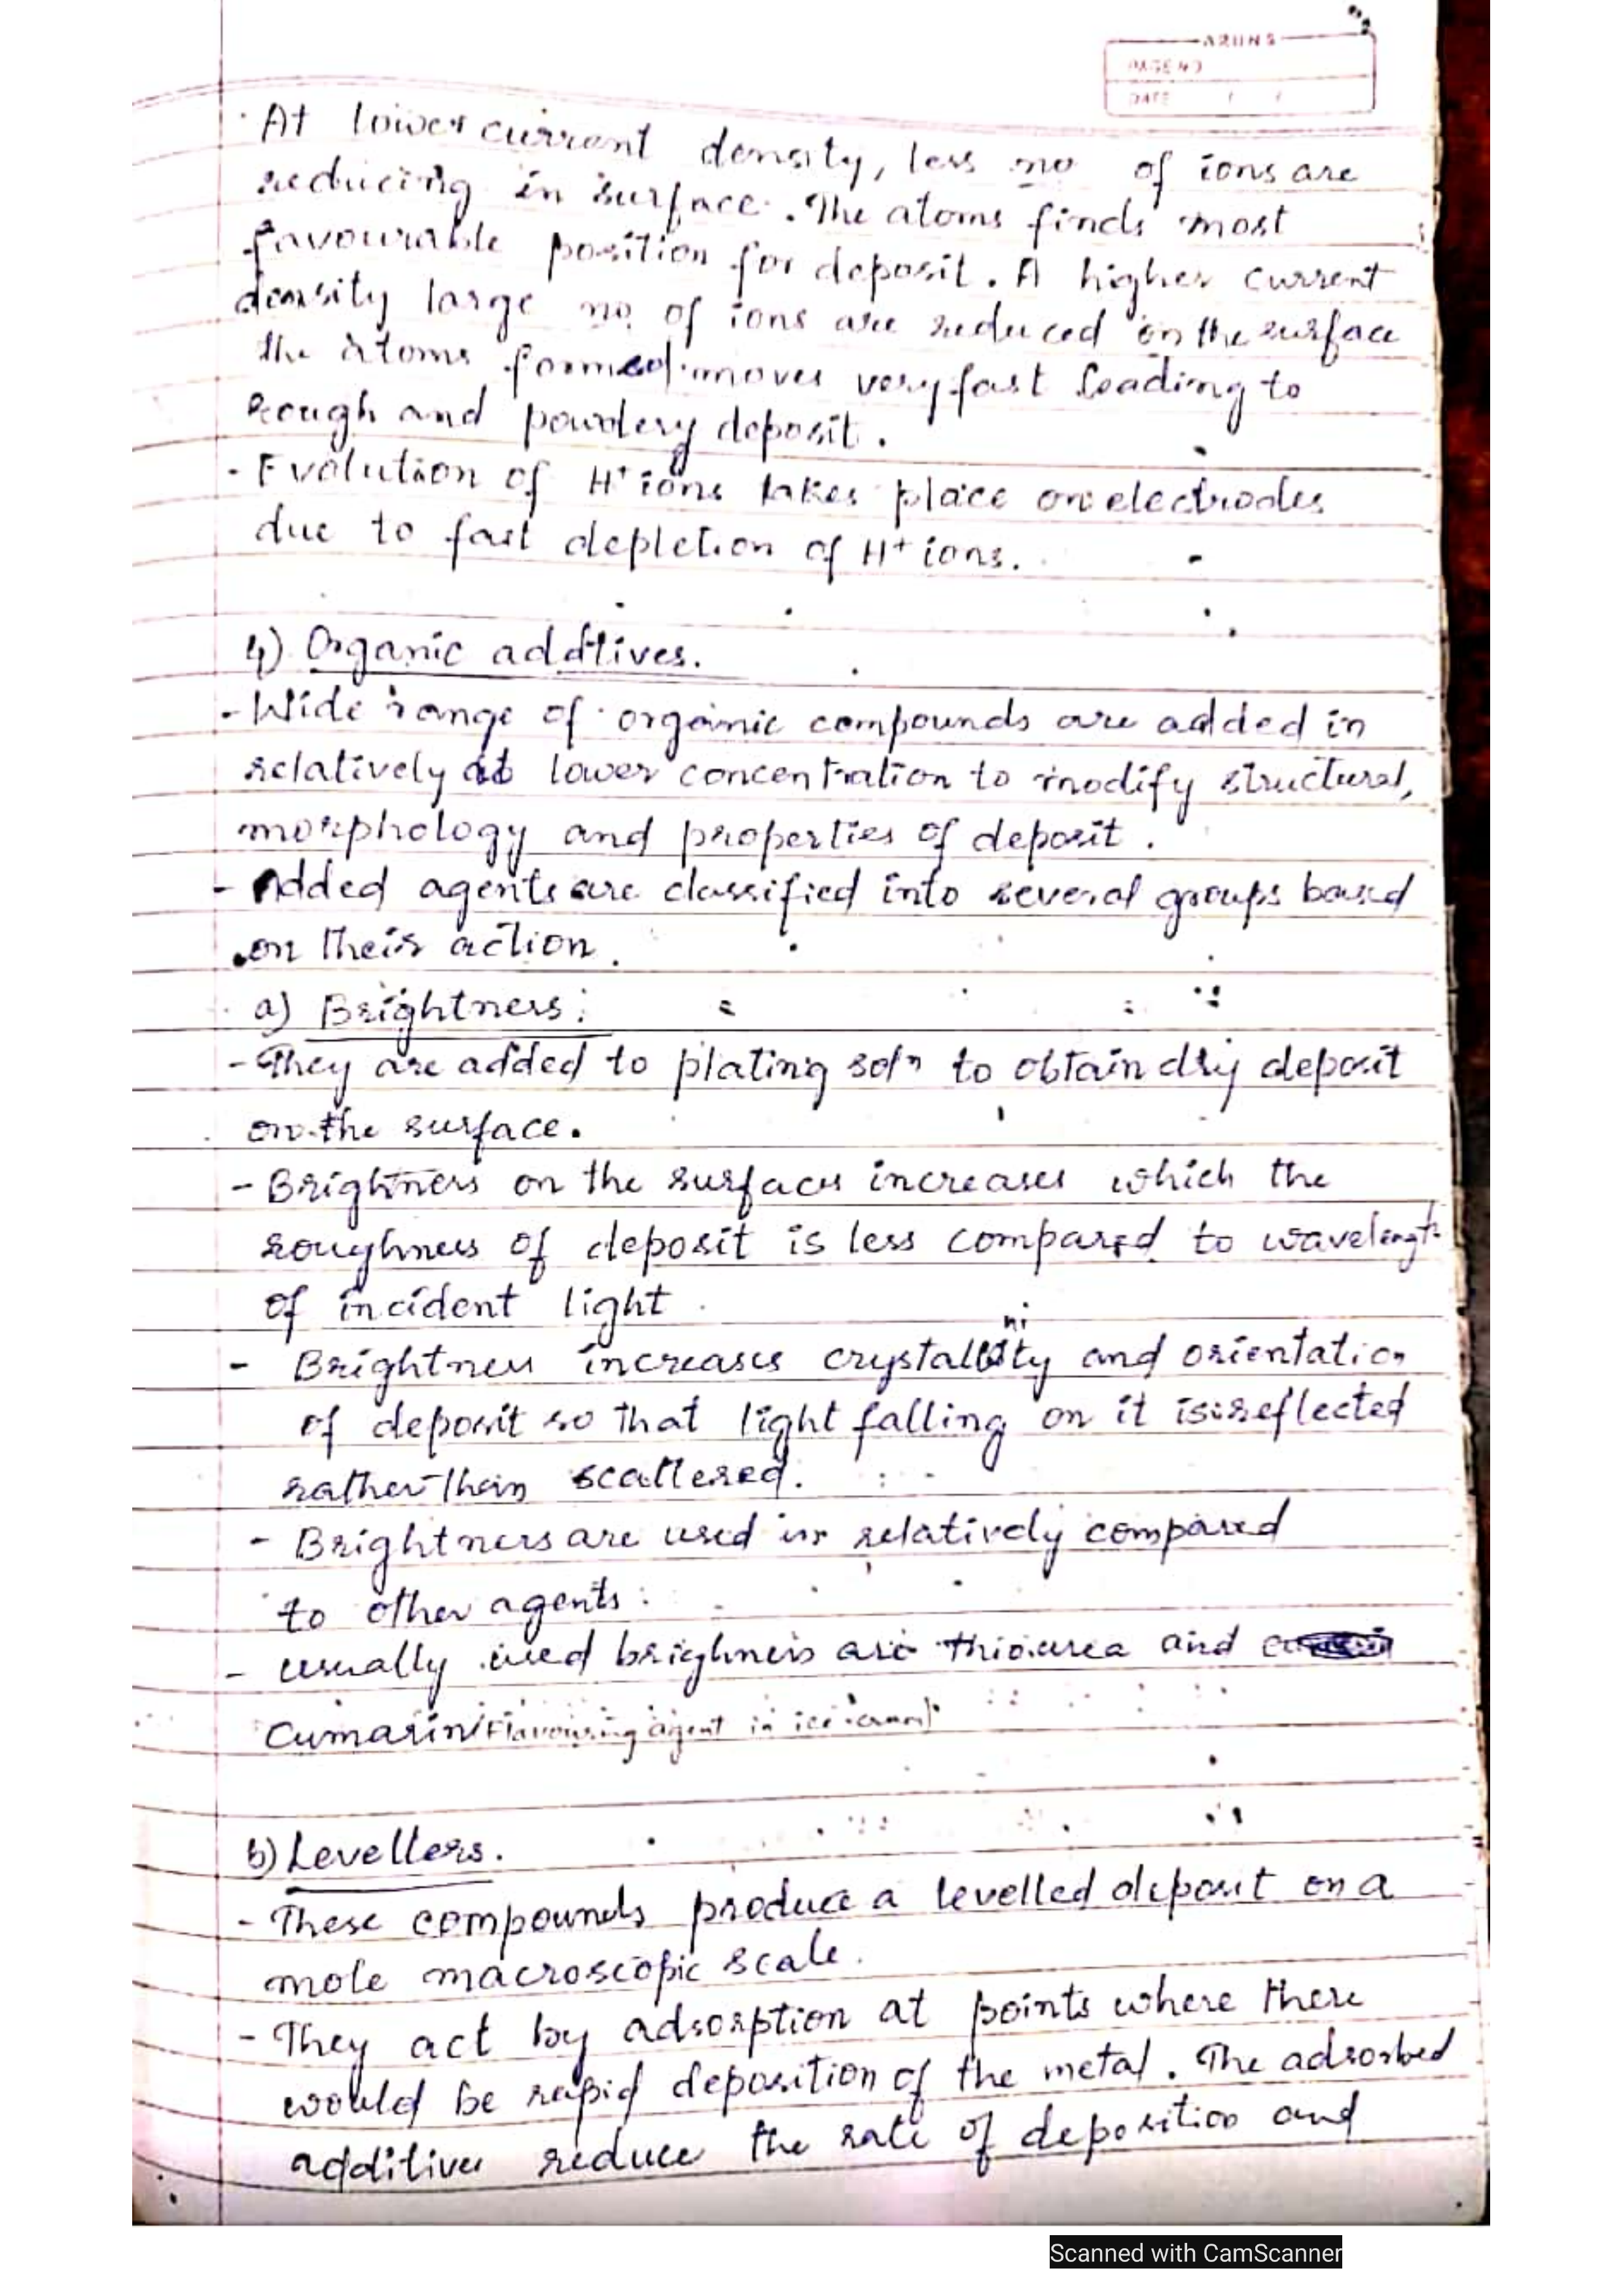 ARUNS
PAGE NO
DATE / /
· At lower current density, less no of ions are
reducing in surface. The atoms finds most
favourable position for deposit. A higher current
density large no. of ions are reduced on the surface
the atoms formed moves very fast leading to
Rough and powdery deposit.
- Evolution of H⁺ ions takes place on electrodes
due to fast depletion of H⁺ ions.
4) Organic additives.
- Wide range of organic compounds are added in
relatively at lower concentration to modify structural,
morphology and properties of deposit.
- Added agents are classified into several groups based
on their action.
a) Brightness:
- They are added to plating solⁿ to obtain dry deposit
on the surface.
- Brightness on the surfaces increases which the
roughness of deposit is less compared to wavelength
of incident light.
- Brightness increases crystallinity and orientation
of deposit so that light falling on it is reflected
rather than scattered.
- Brightness are used in relatively compared
to other agents.
- usually used brighness are thiourea and
Cumarin (Flavouring agent in ice cream).
b) Levellers.
- These compounds produce a levelled deposit on a
mole macroscopic scale.
- They act by adsorption at points where there
would be rapid deposition of the metal. The adsorbed
additives reduce the rate of deposition and
Scanned with CamScanner